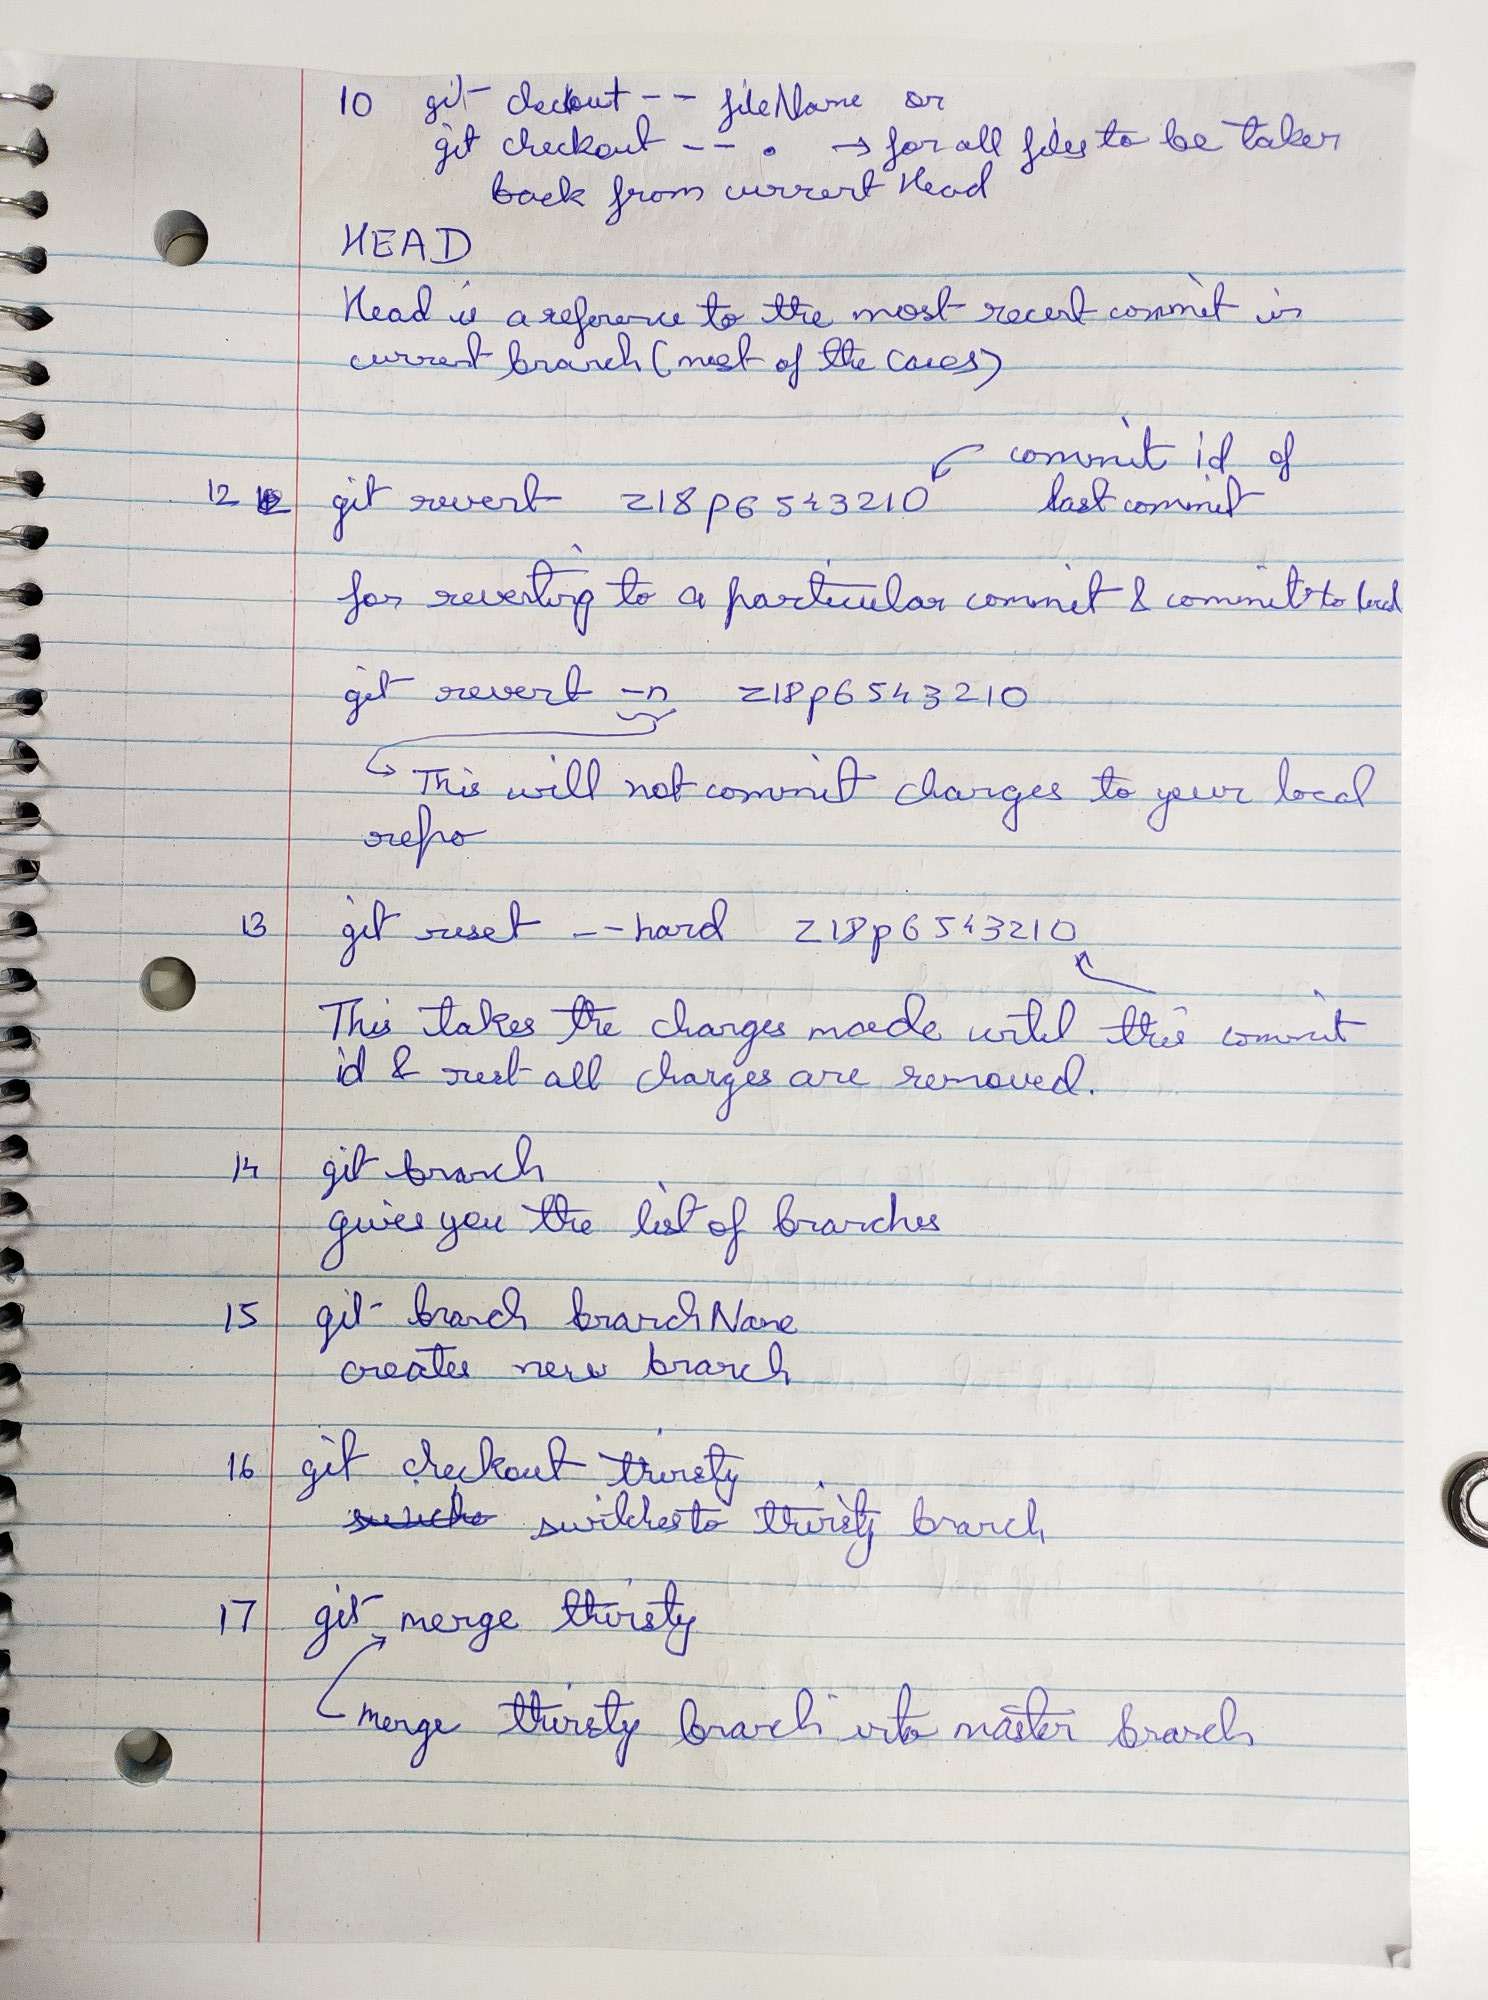 10 git checkout -- fileName or
git checkout -- . → for all files to be taken
back from current Head
HEAD
Head is a reference to the most recent commit in
current branch (most of the cases)
commit id of
12 git revert z18p6543210 last commit
for reverting to a particular commit & commits to local
git revert -n z18p6543210
This will not commit changes to your local
repo
13 git reset --hard z18p6543210
This takes the changes made until this commit
id & rest all changes are removed.
14 git branch
gives you the list of branches
15 git branch branchName
creates new branch
16 git checkout thirsty
switches to thirsty branch
17 git merge thirsty
merge thirsty branch into master branch